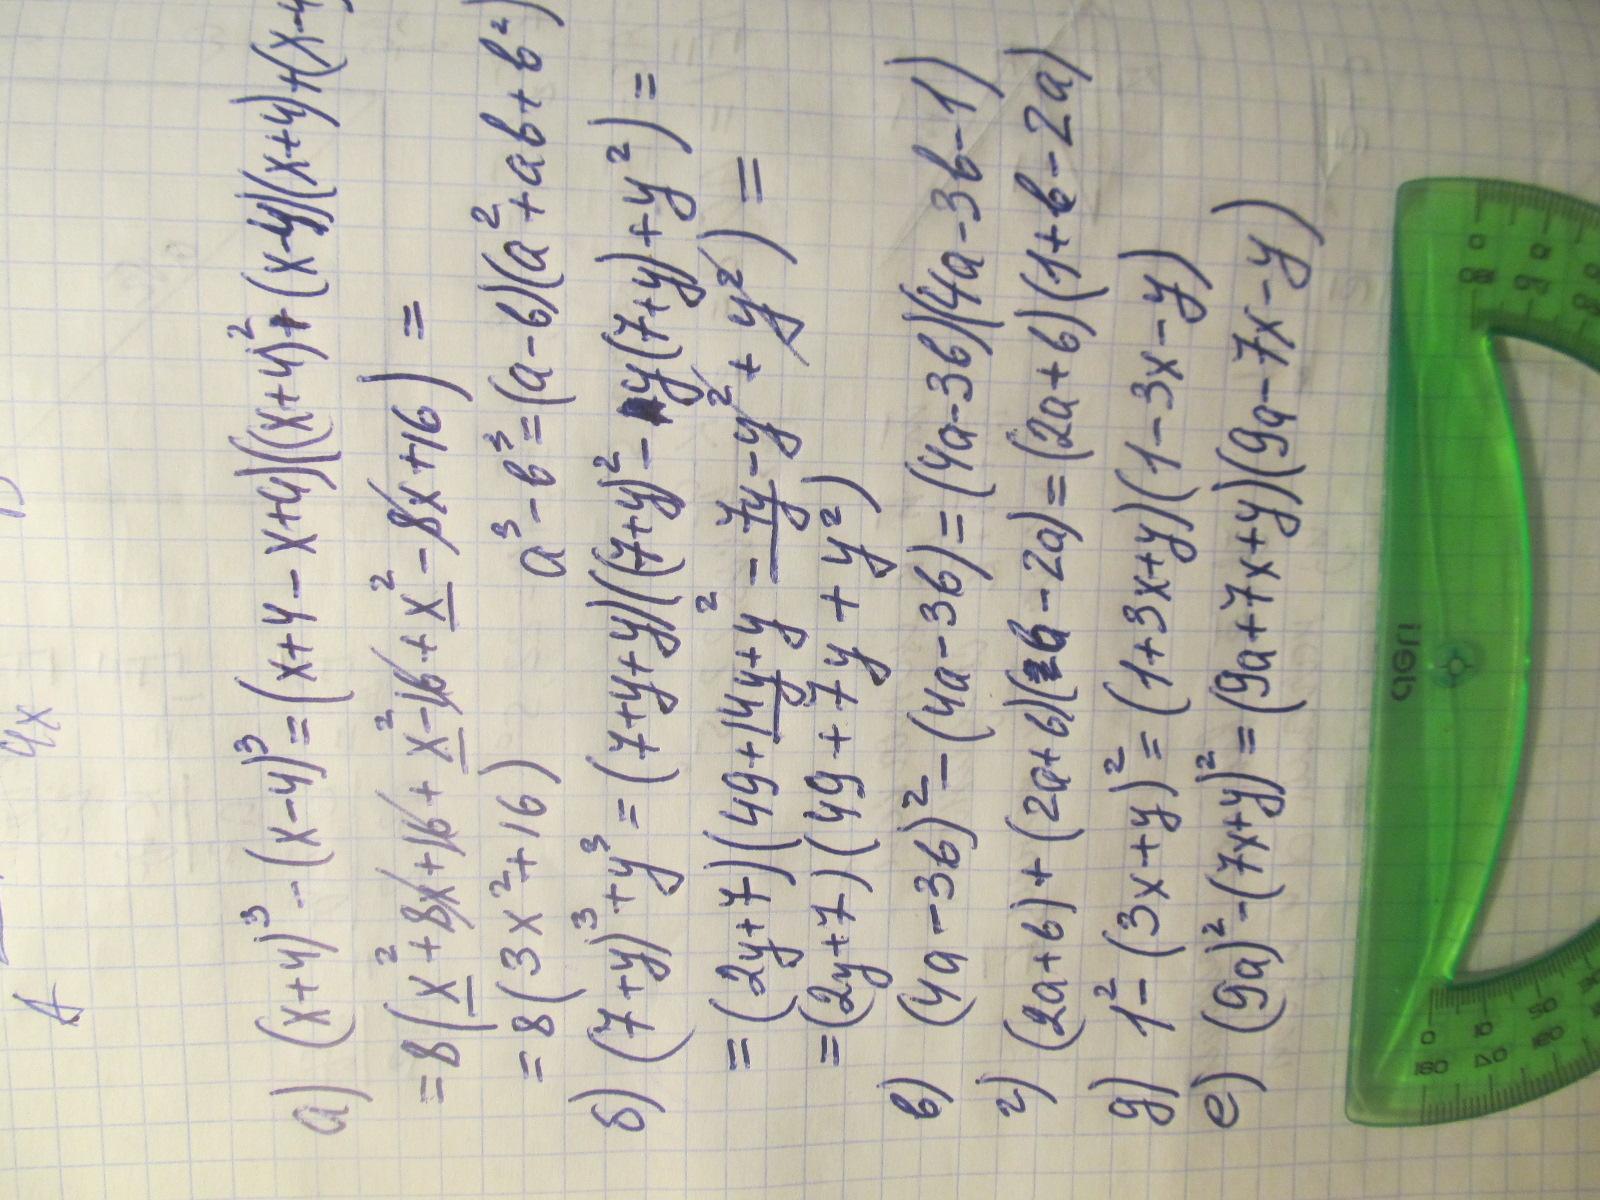 4x
а) (x+4)³ - (x-4)³ = (x+4-x+4)((x+4)²+(x-4)(x+4)+(x-4
= 8(x²+8x+16+x²-16+x²-8x+16) =
= 8(3x²+16)
a³-b³=(a-b)(a²+ab+b²)
б) (7+y)³+y³=(7+y+y)((7+y)²-y(7+y)+y²)=
= (2y+7)(49+14y+y²-7y-y²+y²)=
=(2y+7)(49+7y+y²)
в) (4a-3b)²-(4a-3b)=(4a-3b)(4a-3b-1)
г) (2a+b)+(2a+b)(b-2a)=(2a+b)(1+b-2a)
д) 1²-(3x+y)²=(1+3x+y)(1-3x-y)
е) (9a)²-(7x+y)²=(9a+7x+y)(9a-7x-y)
deli